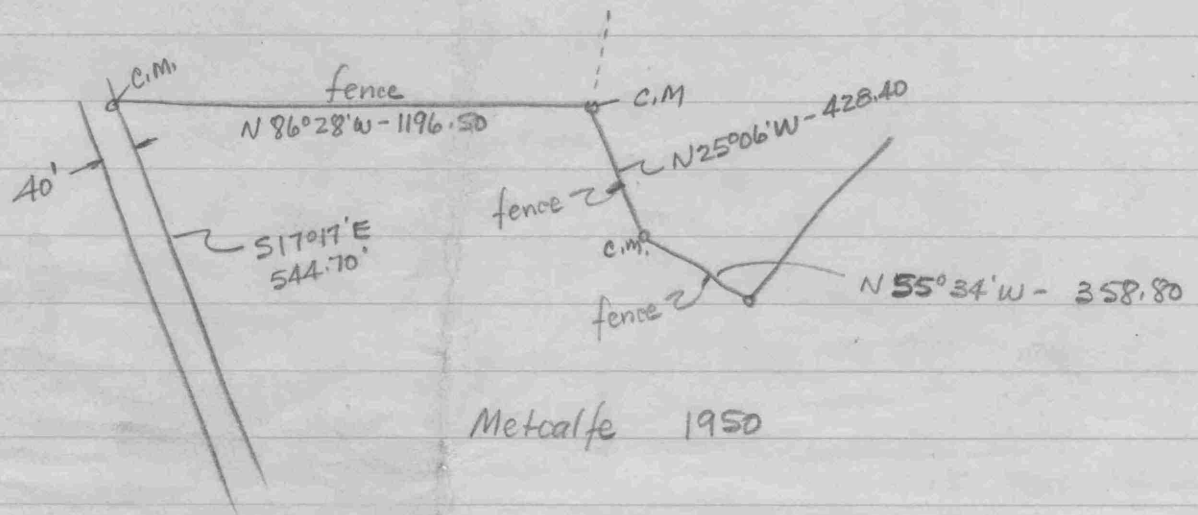 C.M.
fence
N 86°28'W - 1196.50
C.M
N25°06'W - 428.40
40'
fence
S17°17'E
544.70'
C.M.
fence
N 55°34'W - 358.80
Metcalfe 1950